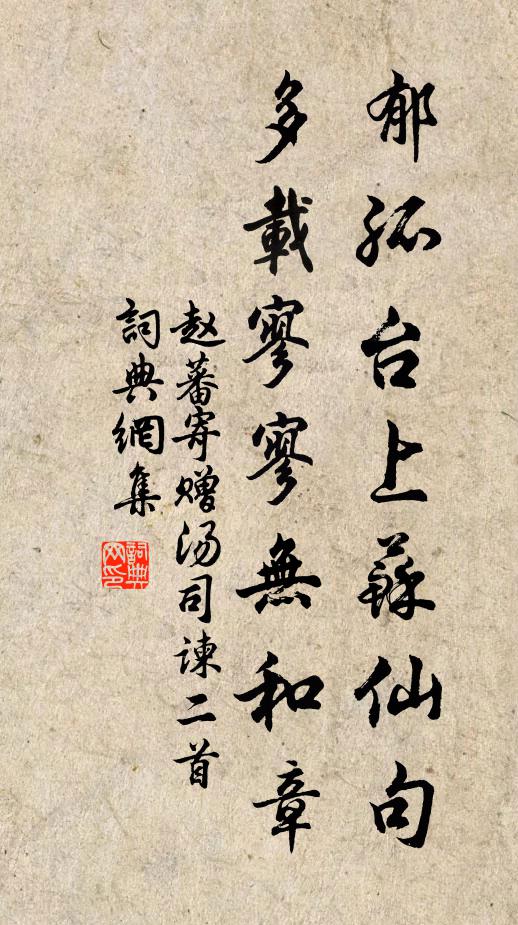 郁孤台上蘇仙句
多載寥寥無和章
赵蕃寄赠汤司諫二首
詞典網集
詞典网印